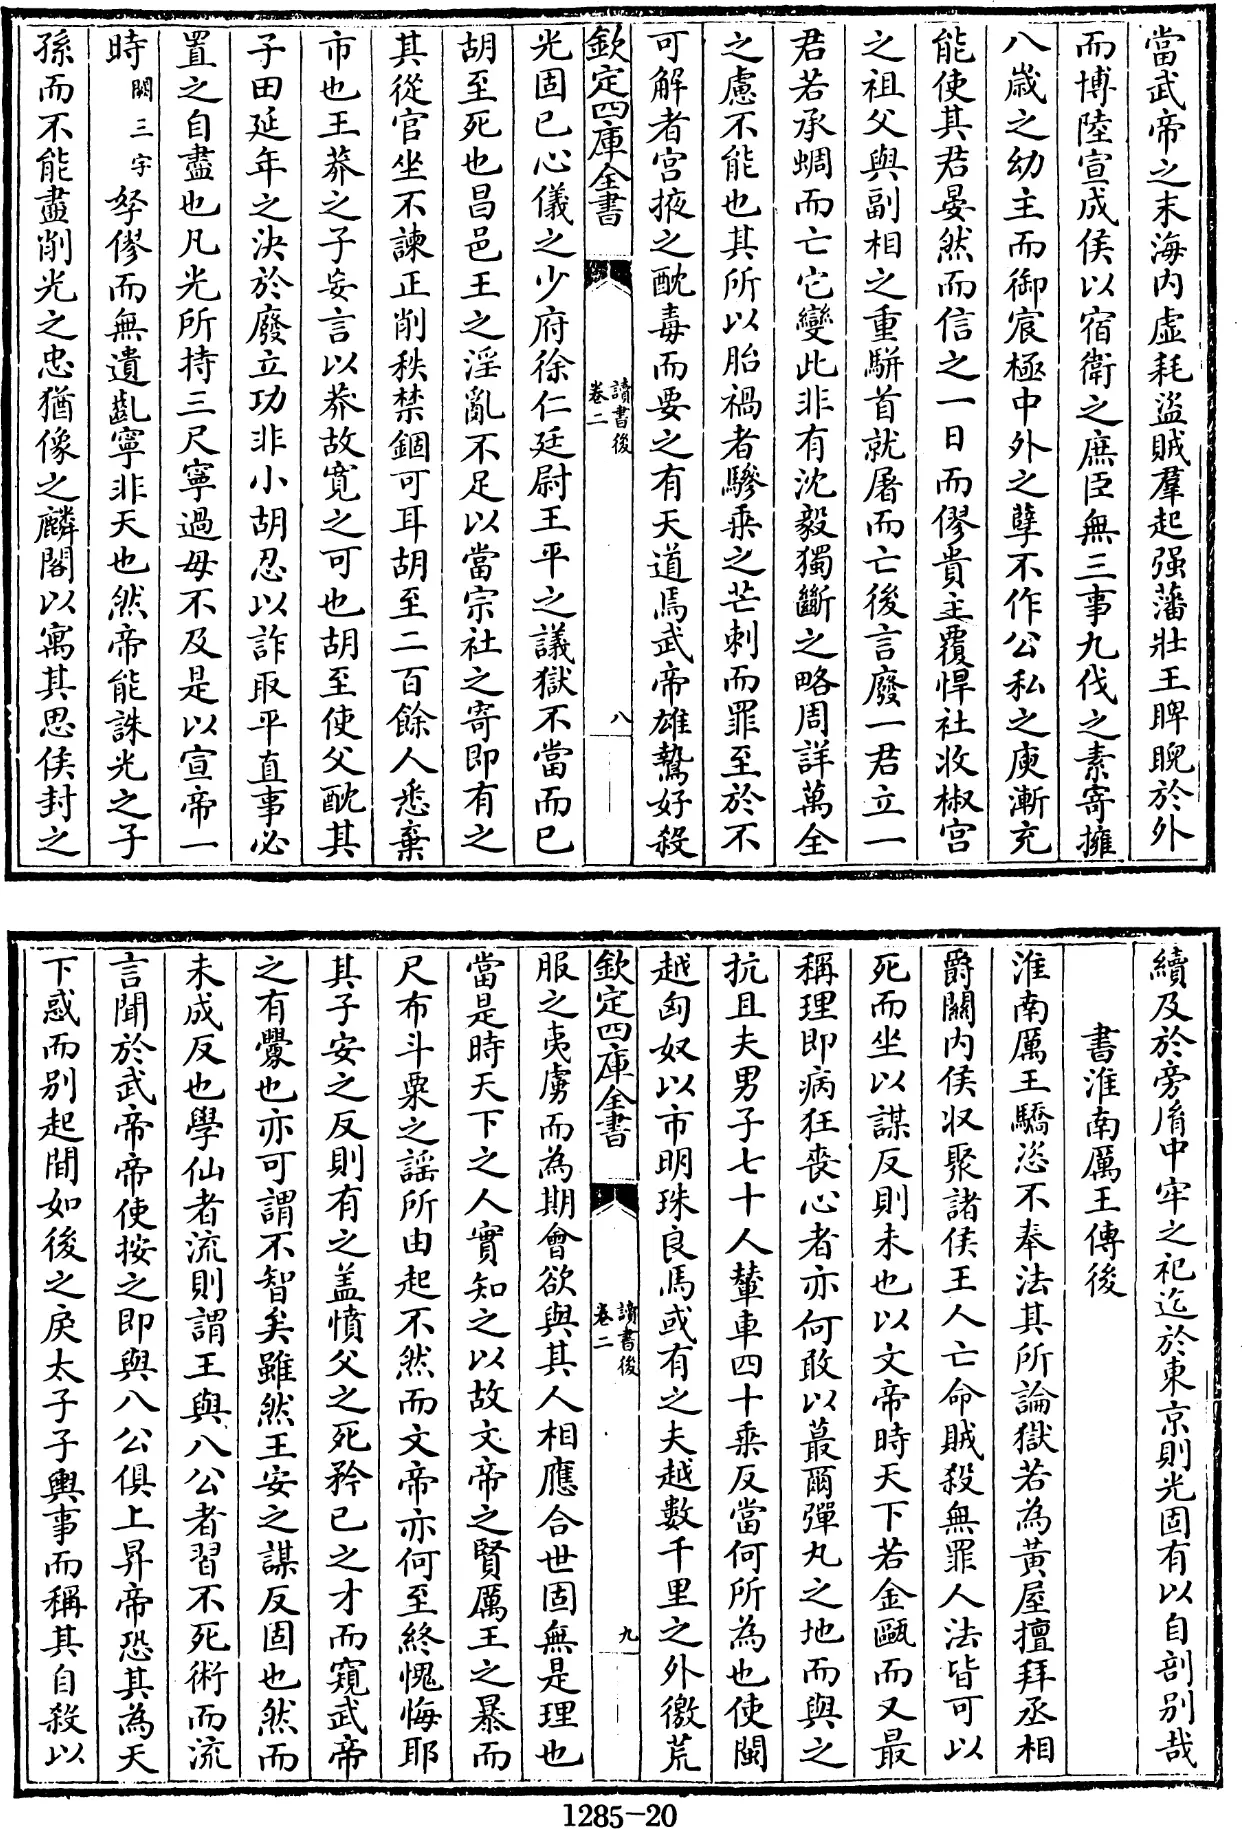 當武帝之末海内虛耗盜賊羣起强藩壯王睥睨於外
而博陸宣成侯以宿衛之庶臣無三事九伐之素寄擁
八歲之幼主而御宸極中外之孽不作公私之庾漸充
能使其君晏然而信之一日而僇貴主覆悍社收椒宮
之祖父與副相之重駢首就屠而亡後言廢一君立一
君若承蜩而亡它變此非有沈毅獨斷之略周詳萬全
之慮不能也其所以胎禍者驂乘之芒刺而罪至於不
可解者宮掖之酖毒而要之有天道焉武帝雄鷙好殺
欽定四庫全書
讀書後
卷二
八
光固已心儀之少府徐仁廷尉王平之議獄不當而已
胡至死也昌邑王之淫亂不足以當宗社之寄即有之
其從官坐不諫正削秩禁錮可耳胡至二百餘人悉棄
市也王莽之子妄言以莽故寬之可也胡至使父酖其
子田延年之決於廢立功非小胡忍以詐取平直事必
置之自盡也凡光所持三尺寧過毋不及是以宣帝一
時闕三字孥僇而無遺亂寧非天也然帝能誅光之子
孫而不能盡削光之忠猶像之麟閣以寓其思侯封之
續及於旁胤中牢之祀迄於東京則光固有以自剖别哉
書淮南厲王傳後
淮南厲王驕恣不奉法其所論獄若為黃屋擅拜丞相
爵關内侯収聚諸侯王人亡命賊殺無罪人法皆可以
死而坐以謀反則未也以文帝時天下若金甌而又最
稱理即病狂喪心者亦何敢以蕞爾彈丸之地而與之
抗且夫男子七十人輦車四十乘反當何所為也使閩
越匈奴以市明珠良馬或有之夫越數千里之外徼荒
欽定四庫全書
讀書後
卷二
九
服之夷虜而為期會欲與其人相應合世固無是理也
當是時天下之人實知之以故文帝之賢厲王之暴而
尺布斗粟之謡所由起不然而文帝亦何至終愧悔耶
其子安之反則有之盖憤父之死矜已之才而窺武帝
之有釁也亦可謂不智矣雖然王安之謀反固也然而
未成反也學仙者流則謂王與八公者習不死術而流
言聞於武帝帝使按之即與八公俱上昇帝恐其為天
下惑而别起間如後之戾太子子輿事而稱其自殺以
1285-20